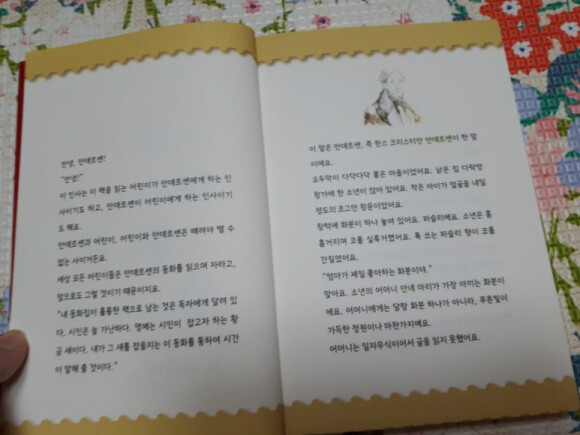 안녕, 안데르센!
"안녕!"
이 인사는 이 책을 읽는 어린이가 안데르센에게 하는 인
사이기도 하고, 안데르센이 어린이에게 하는 인사이기
도 해요.
안데르센과 어린이, 어린이와 안데르센은 떼려야 뗄 수
없는 사이거든요.
세상 모든 어린이들은 안데르센의 동화를 읽으며 자라고,
앞으로도 그럴 것이기 때문이지요.
"내 동화집이 훌륭한 책으로 남는 것은 독자에게 달려 있
다. 시인은 늘 가난하다. 명예는 시인이 잡고자 하는 황
금 새이다. 내가 그 새를 잡을지는 이 동화를 통하여 시간
이 말해 줄 것이다."
이 말은 안데르센, 즉 한스 크리스티안 안데르센이 한 말
이에요.
오두막이 다닥다닥 붙은 마을이었어요. 낡은 집 다락방
창가에 한 소년이 앉아 있어요. 작은 아이가 얼굴을 내밀
정도의 조그만 창문이었어요.
창턱에 화분이 하나 놓여 있어요. 파슬리예요. 소년은 흥
흥거리며 코를 실룩거렸어요. 톡 쏘는 파슬리 향이 코를
간질였어요.
"엄마가 제일 좋아하는 화분이야."
맞아요. 소년의 어머니 안네 마리가 가장 아끼는 화분이
에요. 어머니에게는 달랑 화분 하나가 아니라, 푸른빛이
가득한 정원이나 마찬가지예요.
어머니는 일자무식이어서 글을 읽지 못했어요.